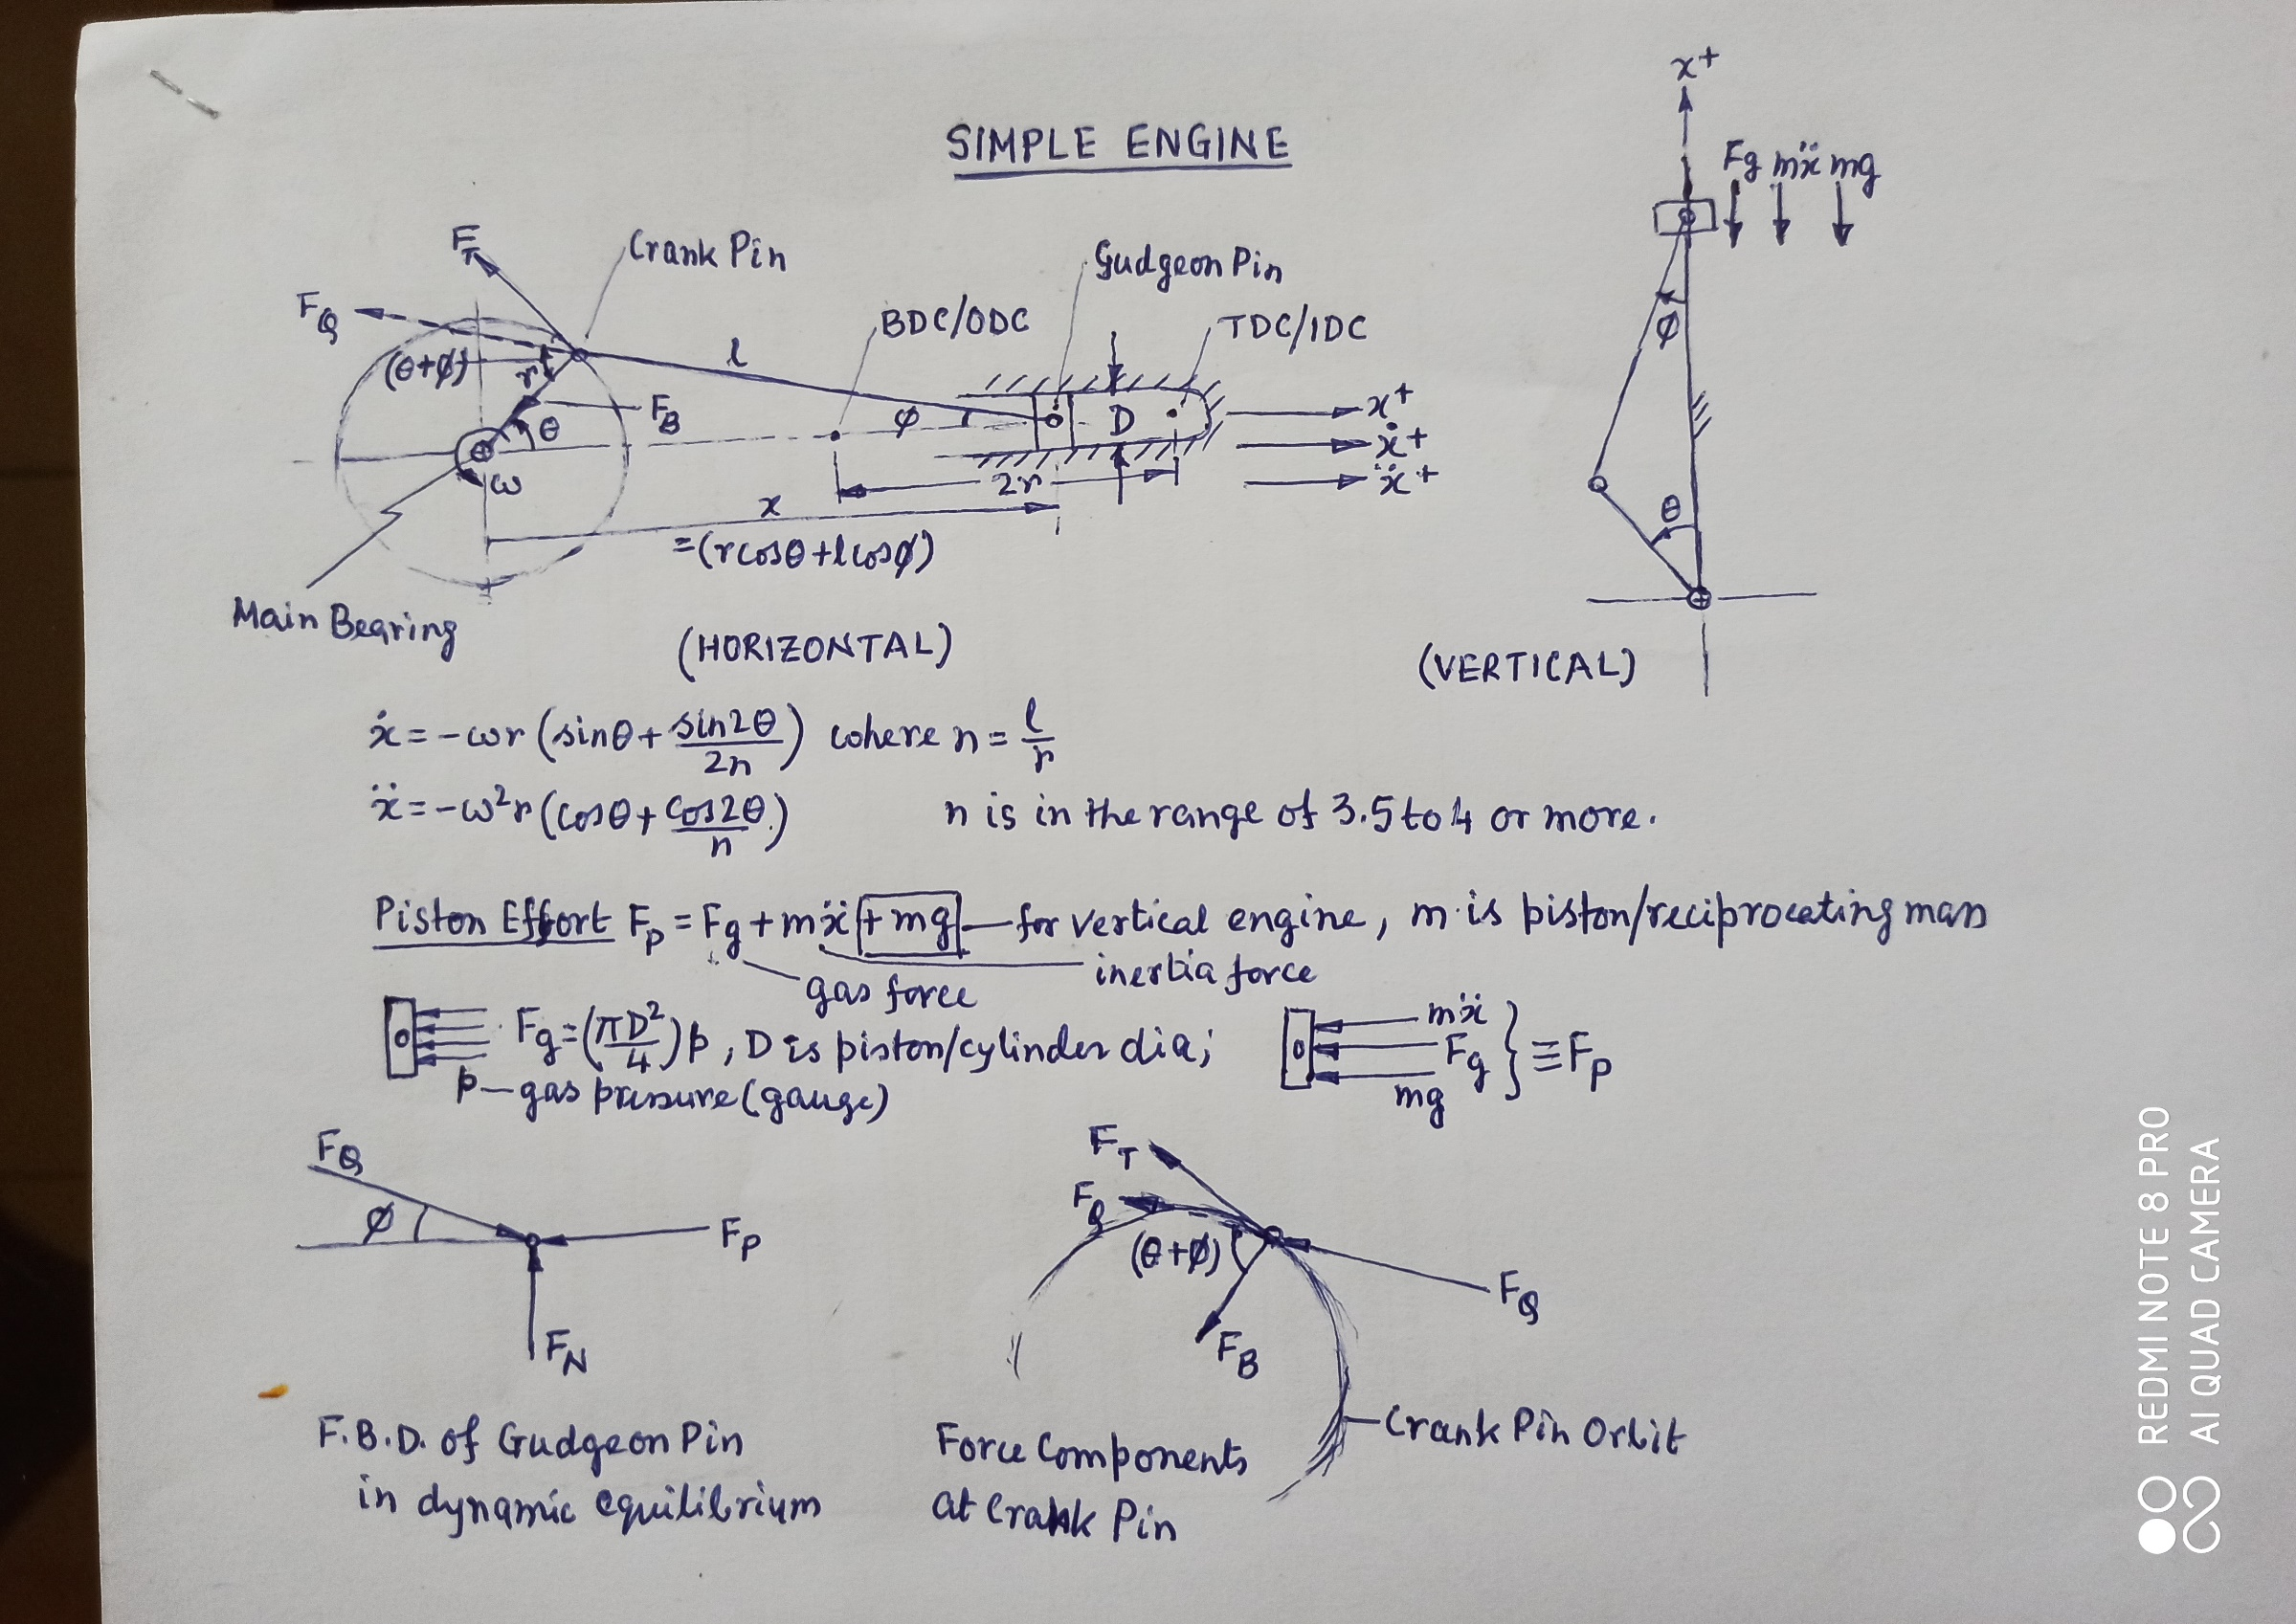 SIMPLE ENGINE
x+
Fg mẍ mg
φ
θ
(VERTICAL)
F_T
Crank Pin
Gudgeon Pin
F_Q
BDC/ODC
TDC/IDC
(θ+φ)
r
l
F_B
θ
φ
D
x+
ẋ+
ẍ+
ω
2r
x
=(rcosθ+lcosφ)
Main Bearing
(HORIZONTAL)
ẋ = -ωr (sinθ + sin2θ/2n) where n = l/r
ẍ = -ω²r (cosθ + cos2θ/n) n is in the range of 3.5 to 4 or more.
Piston Effort F_p = F_g + mẍ + mg — for vertical engine, m is piston/reciprocating mass
gas force
inertia force
F_g = (πD²/4)p, D is piston/cylinder dia;
p — gas pressure (gauge)
mẍ
F_g } ≡ F_p
mg
F_Q
φ
F_P
F_N
F.B.D. of Gudgeon Pin
in dynamic equilibrium
F_T
F_Q
(θ+φ)
F_Q
F_B
Crank Pin Orbit
Force Components
at Crank Pin
REDMI NOTE 8 PRO
AI QUAD CAMERA